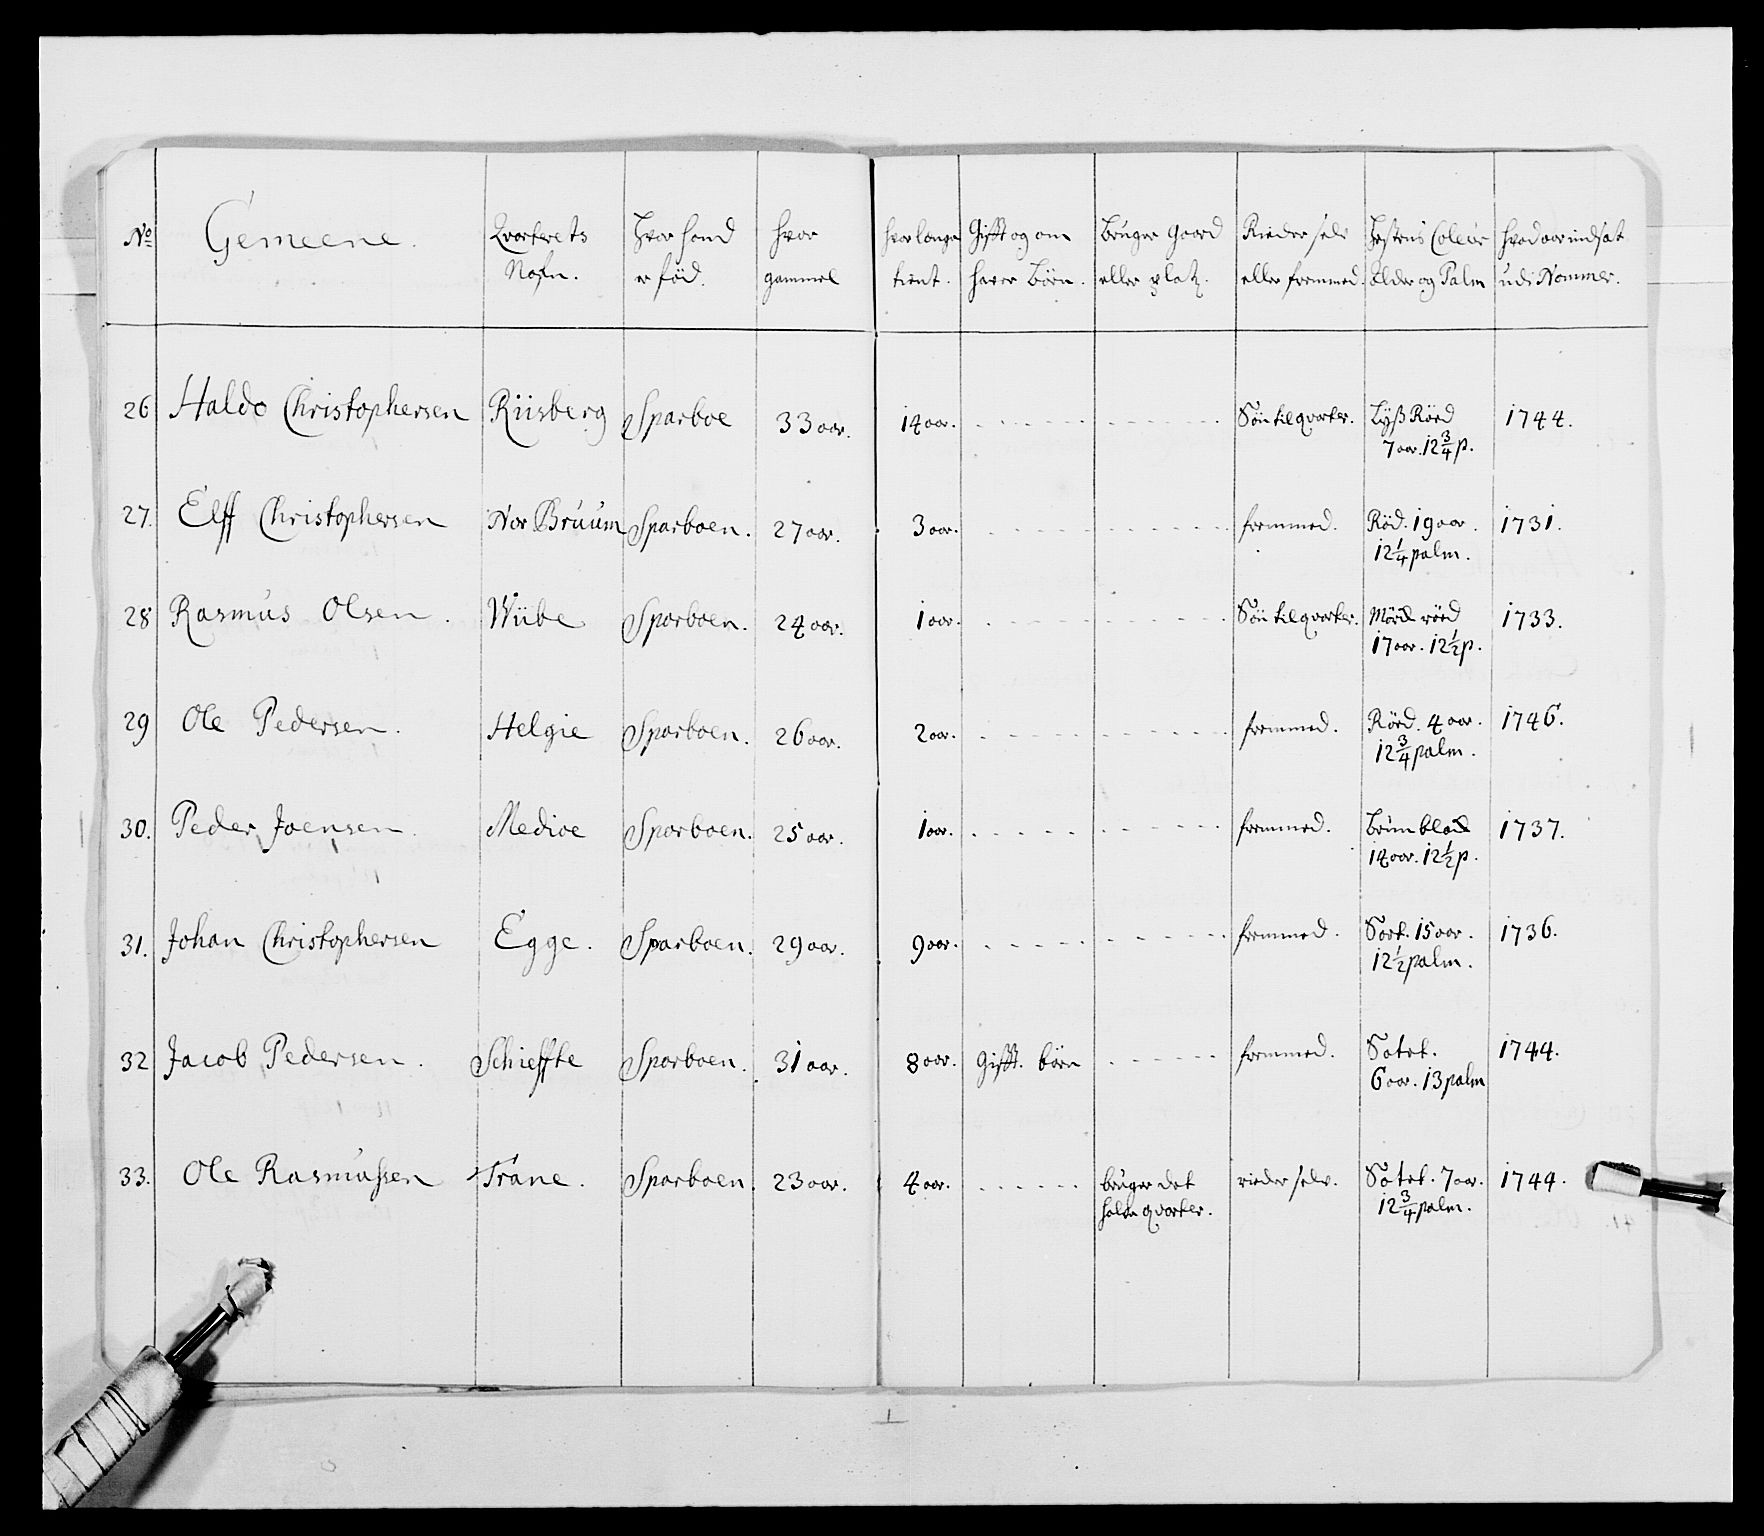 No Gemeene. Qvarterets Hvor hand hvor hvor lange Gifft og om Bruger Gaard Rieder selv Hestens Coleur hvad aar indsat
Nafn. er föd. gammel tient. haver Börn. eller platz. eller fremmed. Alder og Palm udi Nommer.
26 Haldo Christophersen Riisberg Sparboe 33 aar. 14 aar. Søn til qvarter. Lyß Röed 1744.
7 aar. 12 3/4 p.
27. Elff Christophersen Nor Bruum Sparboen. 27 aar. 3 aar. fremmed. Röd. 19 aar. 1731.
12 1/4 palm.
28 Rasmus Olsen. Wiibe Sparboen. 24 aar. 1 aar. Søn til qvarter. Mörck röed 1733.
17 aar. 12 1/2 p.
29 Ole Pedersen. Helgie Sparboen. 26 aar. 2 aar. fremmed. Röed. 4 aar. 1746.
12 3/4 palm.
30. Peder Joensen. Medioe Sparboen. 25 aar. 1 aar. fremmed. Bruun 1737.
14 aar. 12 1/2 p.
31. Johan Christophersen Egge. Sparboen. 29 aar. 9 aar. fremmed. Sort. 15 aar. 1736.
12 1/2 palm.
32 Jacob Pedersen. Schieffte Sparboen. 31 aar. 8 aar. Gifft. börn fremmed. Sotet. 1744.
6 aar. 13 palm
33. Ole Rasmussen Trane. Sparboen. 23 aar. 4 aar. bruger det rieder selv. Sotet. 7 aar. 1744.
halve qvarter. 12 3/4 palm.